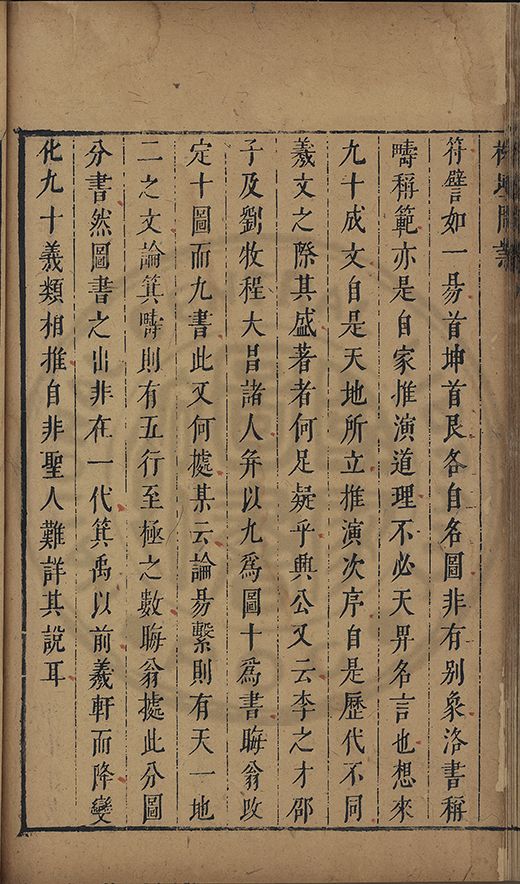 符譬如一易首坤首艮各自名圖非有別象洛書稱
疇稱範亦是自家推演道理不必天畀名言也想來
九十成文自是天地所立推演次序自是歷代不同
羲文之際其盛著者何足疑乎興公又云李之才邵
子及劉牧程大昌諸人并以九爲圖十爲書晦翁改
定十圖而九書此又何據某云論易繫則有天一地
二之文論箕疇則有五行至極之數晦翁據此分圖
分書然圖書之出非在一代箕禹以前羲軒而降變
化九十義類相推自非聖人難詳其說耳